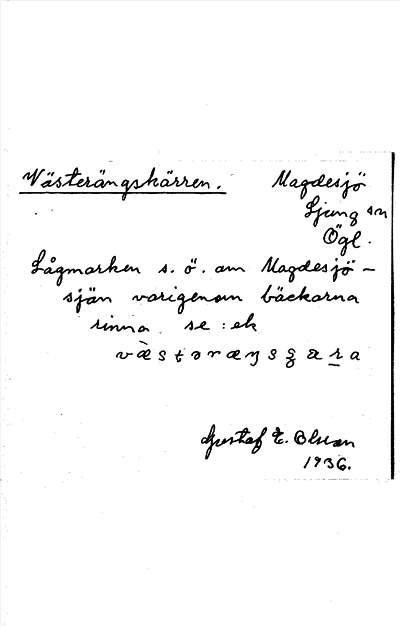 Västerängskärren. Magdesjö
Ljung sn
Ögl.
Lågmarken s. ö. om Magdesjö-
sjän varigenom bäckarna
rinna se : ek
Gustaf E. Olson
1936.